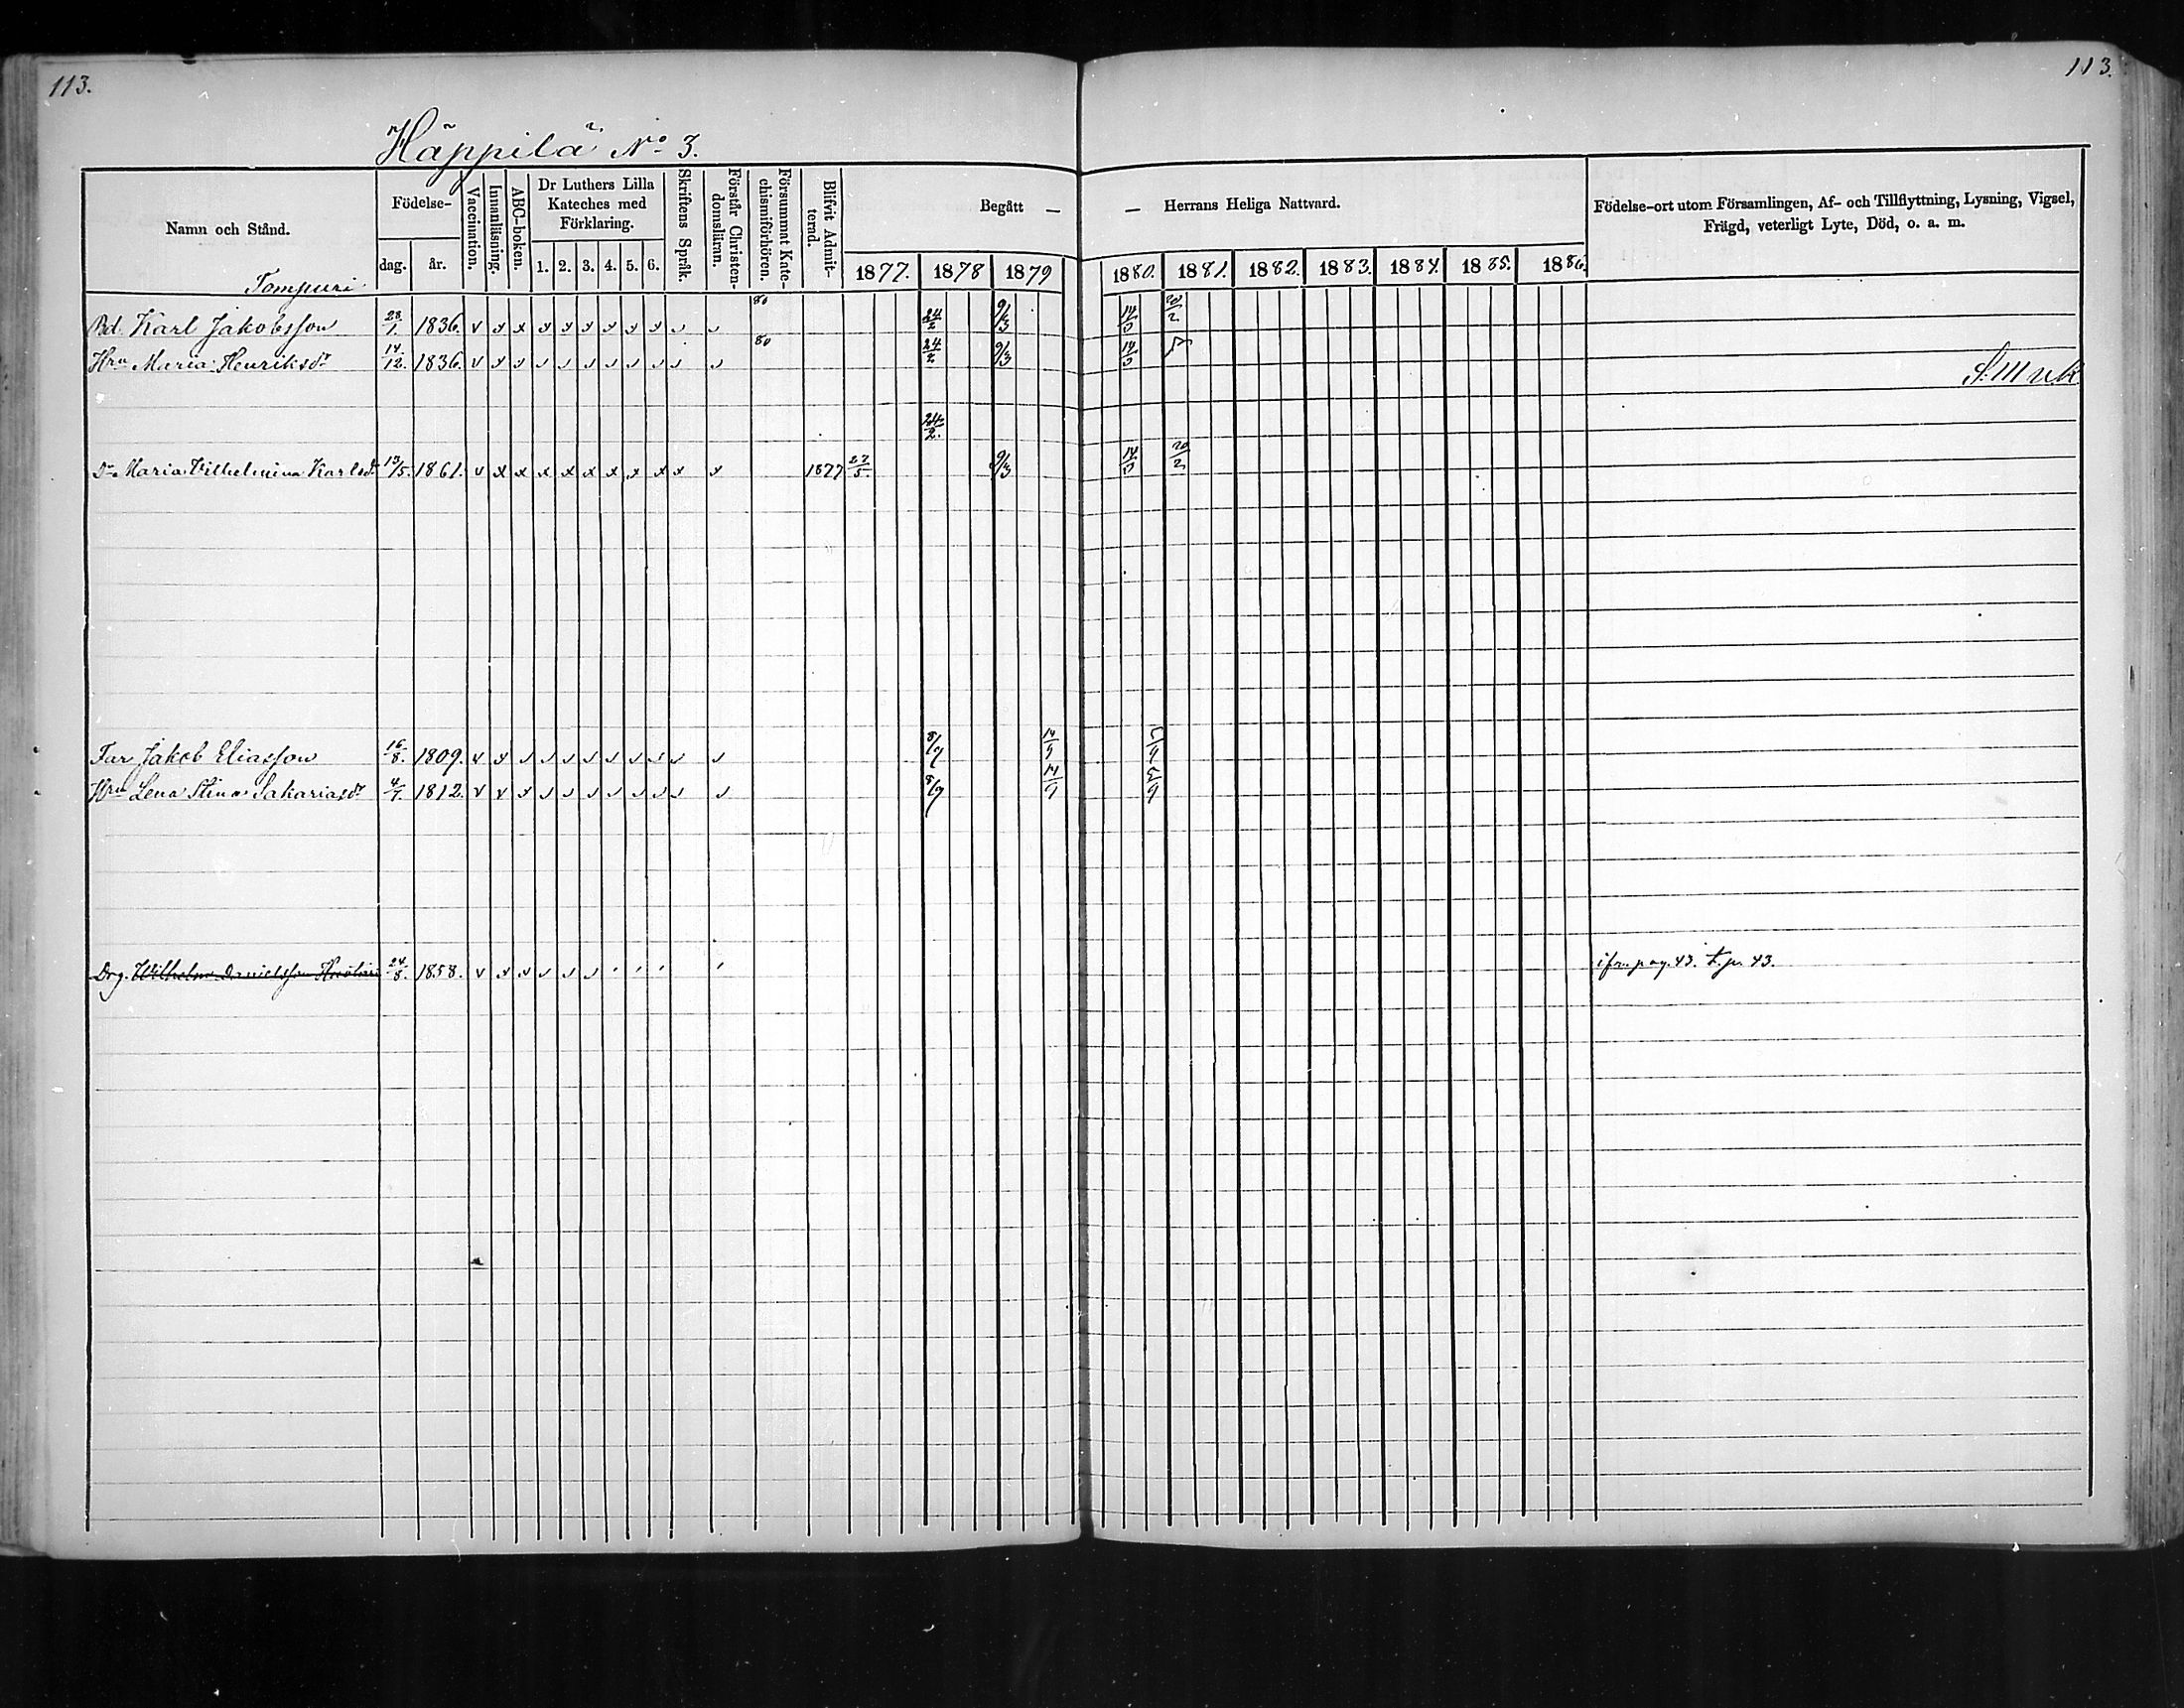 113.
113.
Häppilä No 3.
Namn och Stånd.
Födelse-
dag.
år.
Vaccination.
Innanläsning.
ABC-boken.
Dr Luthers Lilla
Kateches med
Förklaring.
1. 2. 3. 4. 5. 6.
Skriftens Språk.
Förstår Christen-
domsläran.
Försummat Kate-
chismiförhören.
Blifvit Admit-
terad.
Begått —
— Herrans Heliga Nattvard.
1877. 1878 1879 1880. 1881. 1882. 1883. 1884. 1885. 1886.
Födelse-ort utom Församlingen, Af- och Tillflyttning, Lysning, Vigsel,
Frägd, veterligt Lyte, Död, o. a. m.
Tompuri
Bd. Karl Jakobsson 28/1 1836. 80 24/2 9/3 14/3 20/2
Hru Maria Henriksdr 14/12. 1836. 80 24/2 9/3 14/3
24/2.
Dr Maria Vilhelmina Karlsdr 13/5. 1861. 1877 27/5. 9/3 14/3 20/2
Far Jakob Eliasson 16/8. 1809. 8/9 14/9
Hru Lena Stina Sakariasdr 4/7. 1812. 8/9 14/9
Drg. Wilhelm Danielsson 24/8. 1858. ifr. pag. 43. t. p. 43.